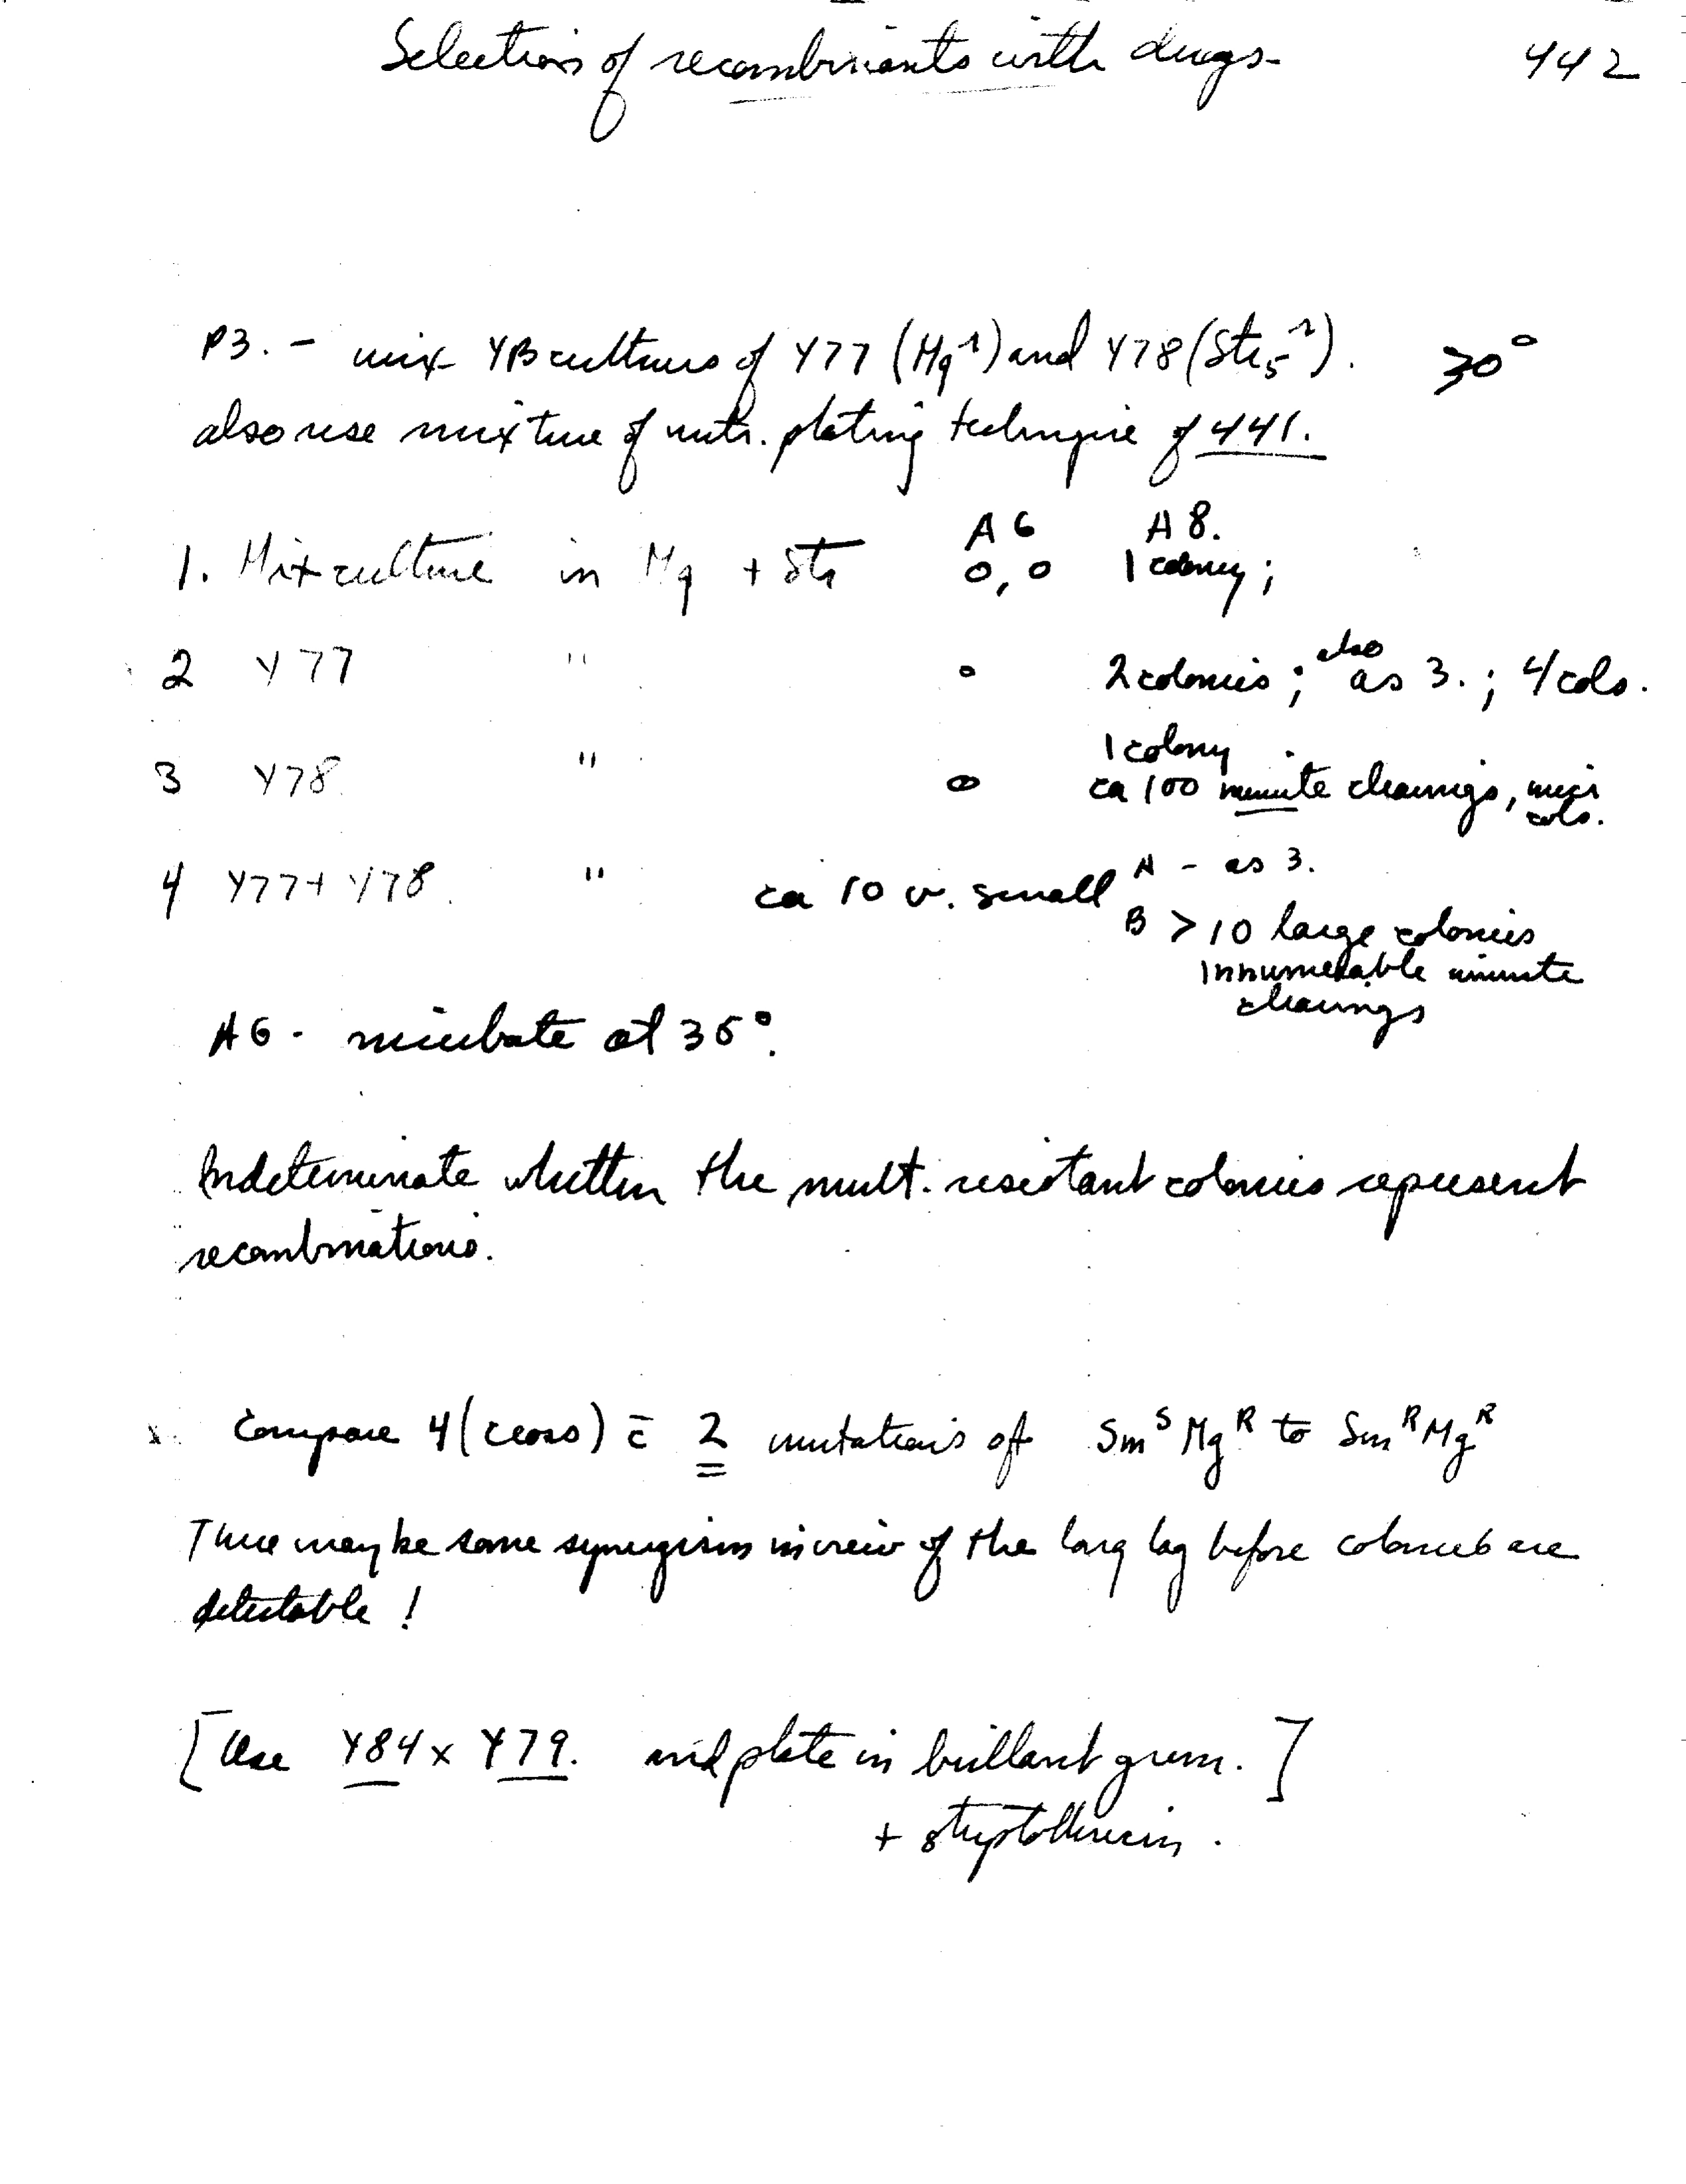 Selection of recombinants with drugs. 442
P3. - mix YB cultures of Y77 (Mg^r) and Y78 (Str5^r). 30°
also use mixture of nutr. plating technique of 441.
A6 A8.
1. Mixt culture in Mg + Str 0,0 1 colony;
2 Y77 " 0 2 colonies; also as 3.; 4 cols.
1 colony
3 Y78 " 0 ca 100 minute clearings, micr cols.
4 Y77 + Y78. " ca 10 v. small A - as 3.
B > 10 large colonies
innumerable minute
clearings
A6 - incubate at 35°.
Indeterminate whether the mult. resistant colonies represent
recombinations.
Compare 4 (cross) c̄ 2 mutations of Sm^S Mg^R to Sm^R Mg^R
There may be some synergism in view of the long lag before colonies are
detectable!
[Use Y84 x Y79. and plate in brillant green.]
+ streptothricin.